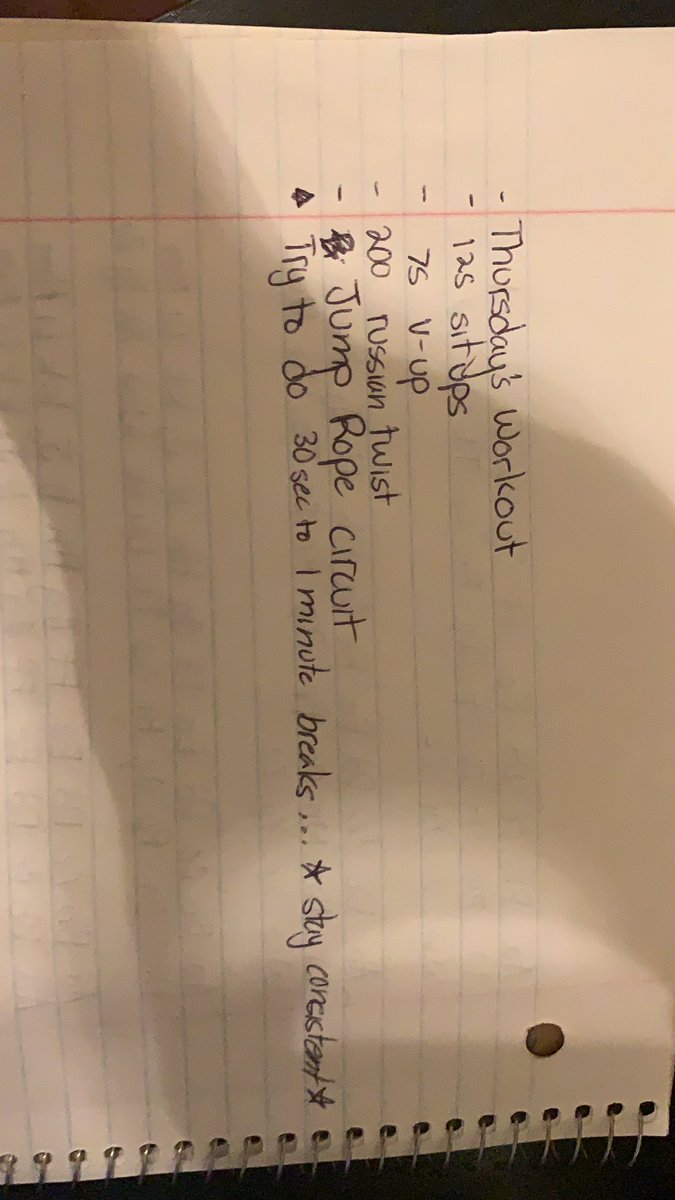 - Thursday's Workout
- 125 situps
- 75 v-up
- 200 russian twist
- Jump Rope circuit
Try to do 30 sec to 1 minute breaks... ★ stay consistent ★